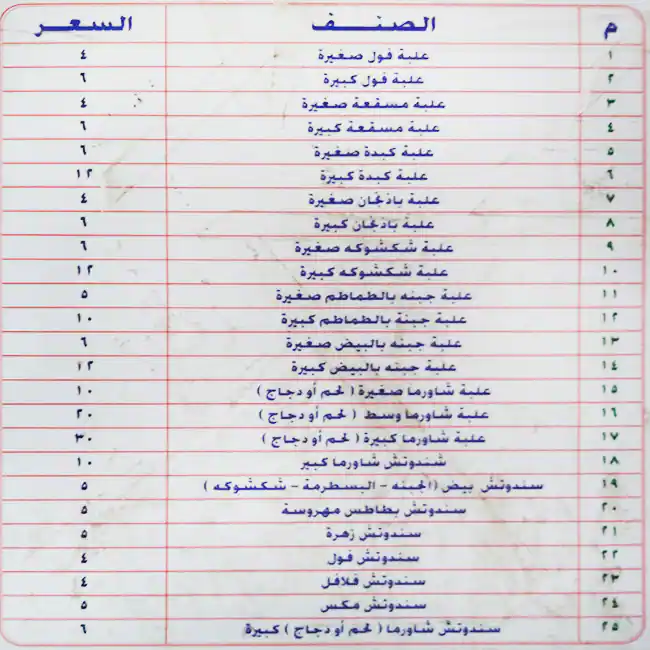 م الصنف السعر
١ علبة فول صغيرة ٤
٢ علبة فول كبيرة ٦
٣ علبة مسقعة صغيرة ٤
٤ علبة مسقعة كبيرة ٦
٥ علبة كبدة صغيرة ٦
٦ علبة كبدة كبيرة ١٢
٧ علبة باذنجان صغيرة ٤
٨ علبة باذنجان كبيرة ٦
٩ علبة شكشوكه صغيرة ٦
١٠ علبة شكشوكه كبيرة ١٢
١١ علبة جبنه بالطماطم صغيرة ٥
١٢ علبة جبنة بالطماطم كبيرة ١٠
١٣ علبة جبنه بالبيض صغيرة ٦
١٤ علبة جبنه بالبيض كبيرة ١٢
١٥ علبة شاورما صغيرة ( لحم أو دجاج ) ١٠
١٦ علبة شاورما وسط ( لحم أو دجاج ) ٢٠
١٧ علبة شاورما كبيرة ( لحم أو دجاج ) ٣٠
١٨ شندوتش شاورما كبير ١٠
١٩ سندوتش بيض (الجبنه - البسطرمة - شكشوكه ) ٥
٢٠ سندوتش بطاطس مهروسة ٥
٢١ سندوتش زهرة ٥
٢٢ سندوتش فول ٤
٢٣ سندوتش فلافل ٤
٢٤ سندوتش مكس ٥
٢٥ سندوتش شاورما ( لحم أو دجاج ) كبيرة ٦